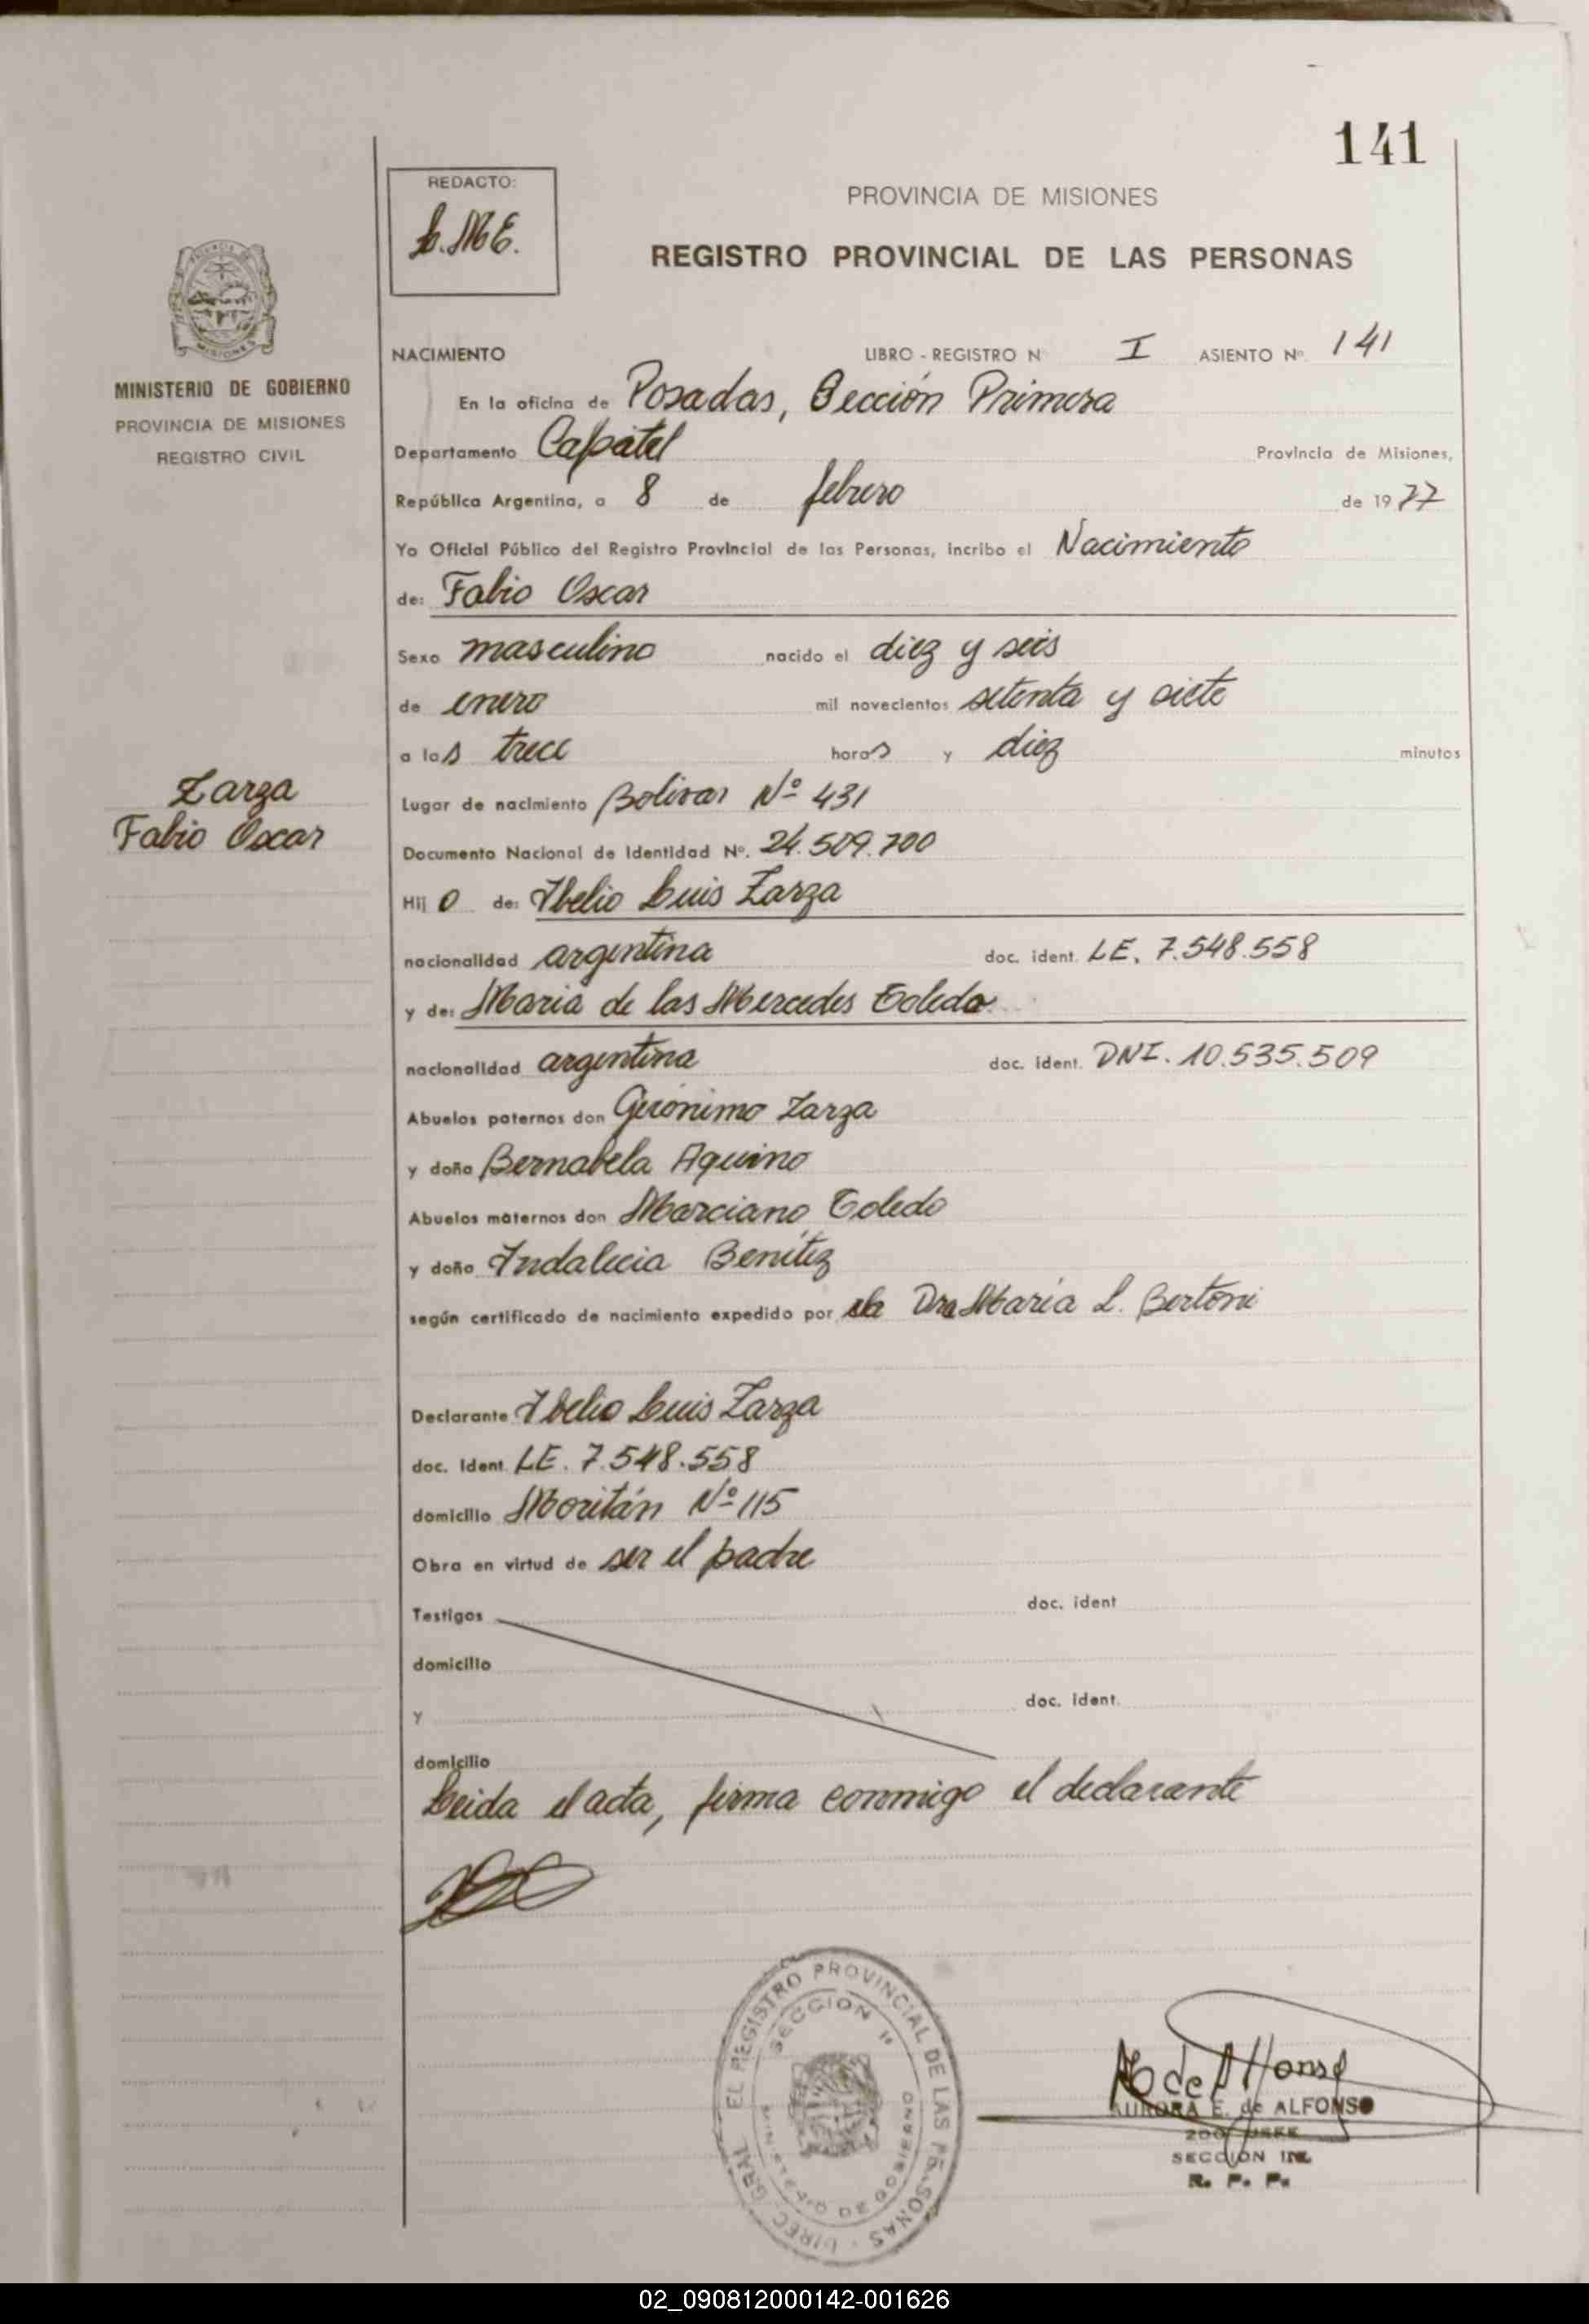 141
REDACTO:
L.M.E.
PROVINCIA DE MISIONES
REGISTRO PROVINCIAL DE LAS PERSONAS
MISIONES
MINISTERIO DE GOBIERNO
PROVINCIA DE MISIONES
REGISTRO CIVIL
NACIMIENTO LIBRO - REGISTRO N I ASIENTO Nº 141
En la oficina de Posadas, Sección Primera
Departamento Capital Provincia de Misiones,
República Argentina, a 8 de febrero de 1977
Yo Oficial Público del Registro Provincial de las Personas, incribo el Nacimiento
de: Fabio Oscar
Sexo masculino nacido el diez y seis
de enero mil novecientos setenta y siete
a las trece horas y diez minutos
Zarza
Fabio Oscar
Lugar de nacimiento Bolivar Nº 431
Documento Nacional de Identidad Nº. 24.509.700
Hij o de: Ybelio Luis Zarza
nacionalidad argentina doc. ident. LE. 7.548.558
y de: Maria de las Mercedes Toledo
nacionalidad argentina doc. ident. DNI. 10.535.509
Abuelos paternos don Gerónimo Zarza
y doña Bernabela Aquino
Abuelos maternos don Marciano Toledo
y doña Indalecia Benítez
según certificado de nacimiento expedido por la Dra María L. Bertoni
Declarante Ybelio Luis Zarza
doc. Ident. LE. 7.548.558
domicilio Moritán Nº 115
Obra en virtud de ser el padre
Testigos doc. ident
domicilio
y doc. ident.
domicilio
Leida el acta, firma conmigo el declarante
DIREC. GRAL. EL REGISTRO PROVINCIAL DE LAS PERSONAS
SECCION 1ª
MINISTERIO DE GOBIERNO
A E de Alfonso
AURORA E. de ALFONSO
2DO JEFE
SECCION 1RA.
R. P. P.
02_090812000142-001626